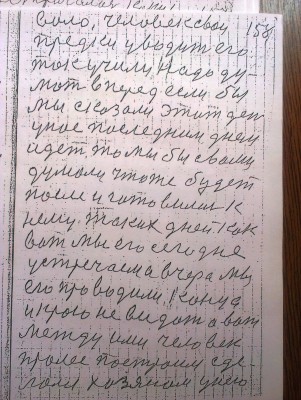 158
было, человек свои
предки уводит его
так учили. Надо ду-
мат вперед если бы
мы сказали этит ден
у нас последним днем
идет то мы бы с вами
думали что же будет
после и готовились к
нему. таких дней как
вот мы его сегодне
устречаем а вчера мы
его проводили. Конца
и краю не видат а вот
между ими человек
пра построим сде-
лали хозяном